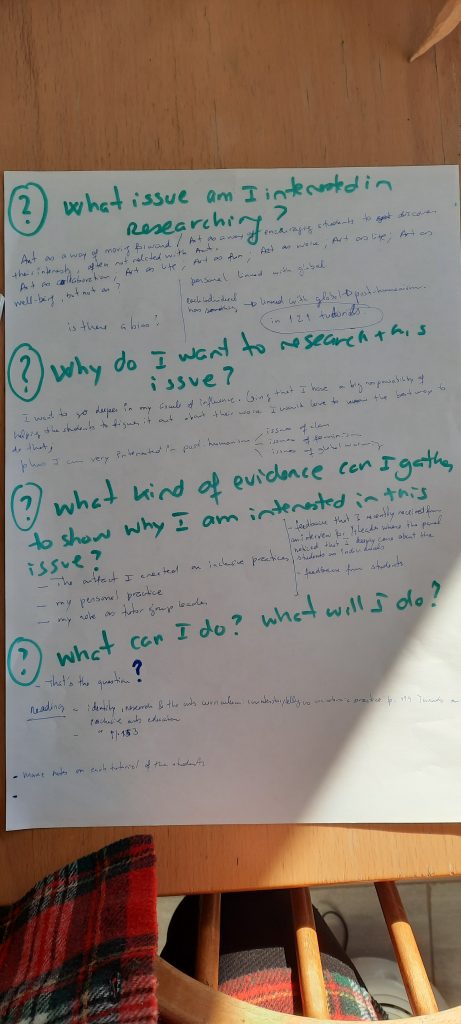 ? What issue am I interested in
researching?
Art as a way of moving forward / Art as a way of encouraging students to get discover
their interests, often not related with Art.
Art as collaboration; Art as life; Art as fun; Art as work; Art as life; Art as
well-being, but not as?
personal linked with global
each individual
has → linked with global → post-humanism.
is there a bias?
in 121 tutorials.
? Why do I want to research this
issue?
I want to go deeper in my circle of influence. Given that I have a big responsibility of
helping the students to figure it out about their work I would love to the best way to
do that;
plus I am very interested in post-humanism
issues of class
issues of feminism
issues of global warming
? What kind of evidence can I gather
to show why I am interested in this
issue?
- The artefact I created on inclusive practices
- my personal practice
- my role as tutor group leader
- feedback that I recently received from
an interview for where the panel
noticed that I deeply care about the
students as individuals
- feedback from students
? What can I do? What will I do?
- That's the question?
Reading - identity, research & the arts curriculum: p. 119 Towards an
inclusive arts education
- " p. 153
- make notes on each tutorial of the students
-